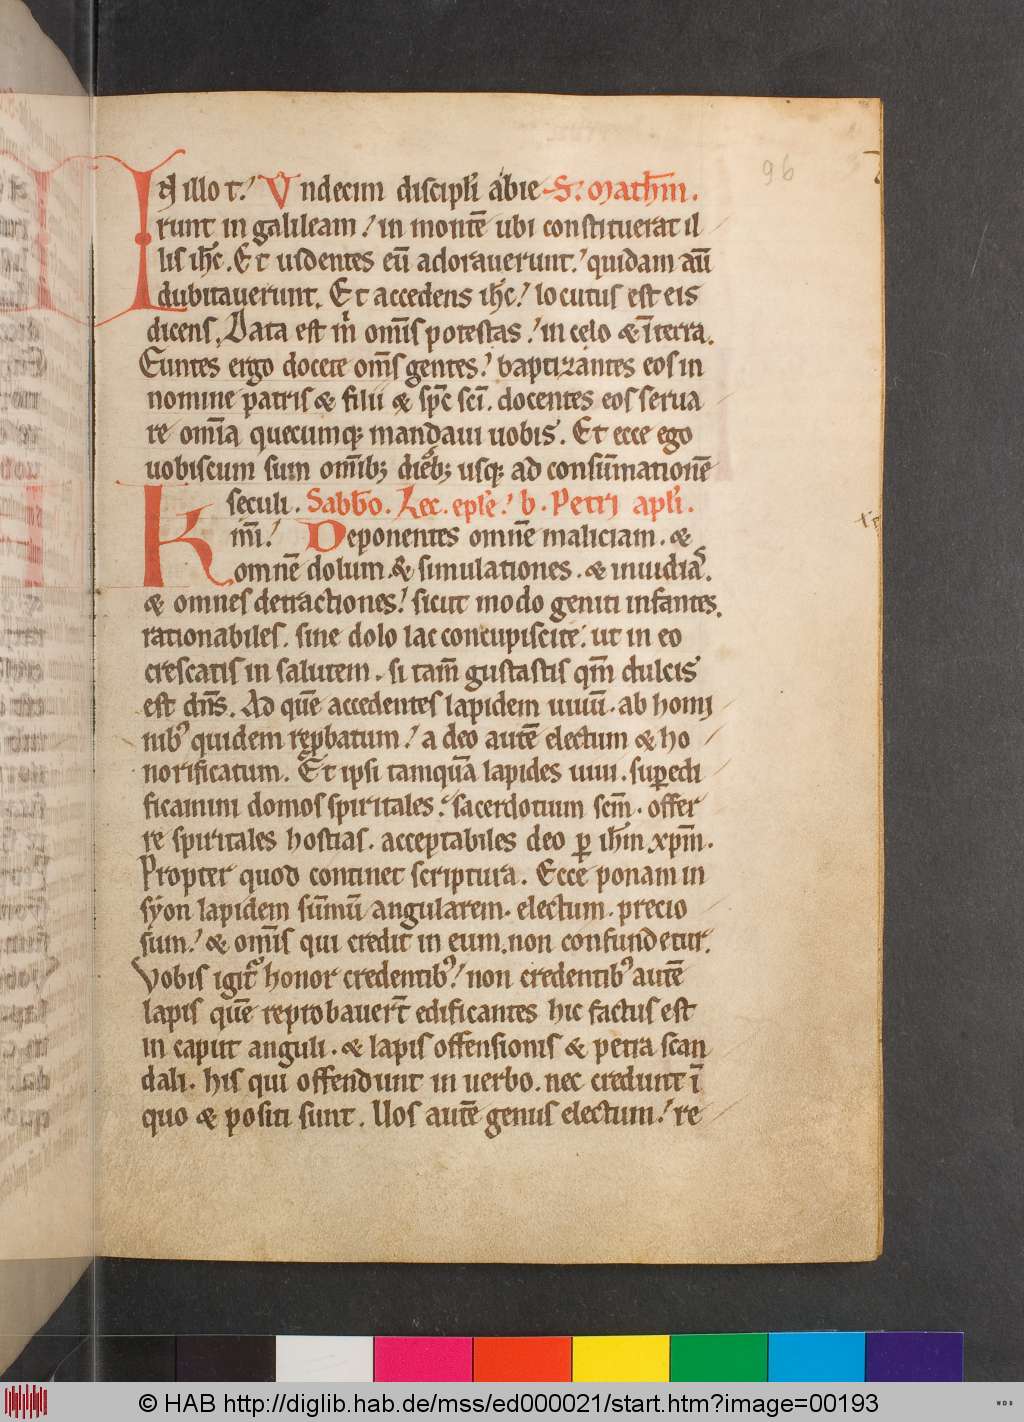 In illo t.' Undecim discipli abie S. Mathm.
runt in galileam.' in montē ubi constituerat il
lis ihc. Et uidentes eū adorauerunt.' quidam aū
dubitauerunt. Et accedens ihc.' locutus est eis
dicens. Data est m̄ om̄is potestas.' in celo & ī terra.
Euntes ergo docete om̄s gentes.' baptizantes eos in
nomine patris & filii & sp̄c sc̄i. docentes eos serua
re om̄ia quecumq; mandaui uobis. Et ecce ego
uobiscum sum om̄ib; dieb; usq; ad consūmationē
seculi. Sabb̄o. Lec. epl̄e.' b. Petri apl̄i.
K mi.' Deponentes omnē maliciam. &
omnē dolum. & simulationes. & inuidias.
& omnes detractiones.' sicut modo geniti infantes.
rationabiles. sine dolo lac concupiscite.' ut in eo
crescatis in salutem. si tam̄ gustastis qm̄ dulcis
est dn̄s. Ad quē accedentes lapidem uiuū. ab homi
nibꝰ quidem rep̱batum.' a deo autē electum & ho
norificatum. Et ipsi tamquā lapides uiui. sup̱edi
ficamini domos spiritales.' sacerdotium sc̄m. offer
re spiritales hostias. acceptabiles deo p̱ ih̄m xp̄m.
Propter quod continet scriptura. Ecce ponam in
syon lapidem sūmū angularem. electum. precio
sum.' & om̄is qui credit in eum. non confundetur.
Vobis igit̄ honor credentibꝰ.' non credentibꝰ autē
lapis quē reprobauer̄t edificantes hic factus est
in caput anguli. & lapis offensionis & petra scan
dali. his qui offendunt in uerbo. nec credunt ī
quo & positi sunt. Uos autē genus electum.' re
96
© HAB http://diglib.hab.de/mss/ed000021/start.htm?image=00193